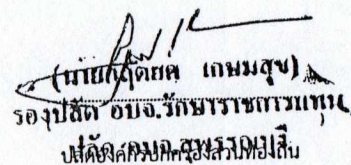 (นายกฤตยศ เกษมสุข)
รองปลัด อบจ.รักษาราชการแทน
ปลัด อบจ.สุพรรณบุรี
ปลัดองค์กรปกครองส่วนท้องถิ่น